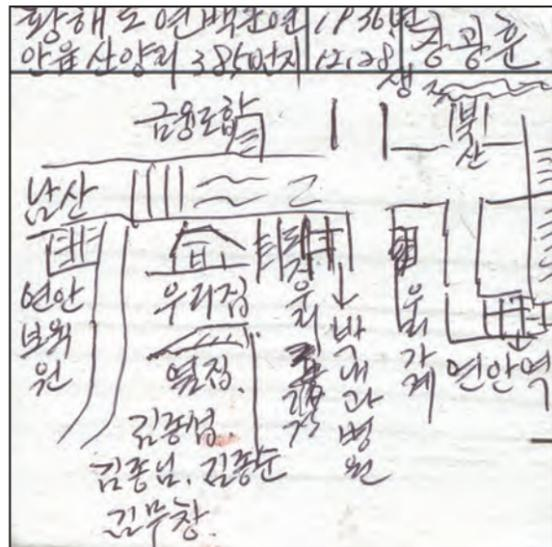 황해도 연백군 연
안읍 산양리 385번지
1936년
12.28
생
장광훈
금융조합
북산
남산
연안
보육
원
우리집
옆집.
김종섭.
김종님. 김종순
김무창.
우리
박내과병원
우리가게
연안역